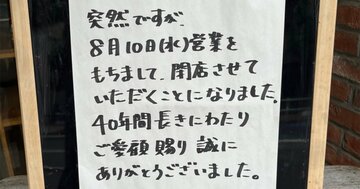 突然ですが、
8月10日(水)営業を
もちまして、閉店させて
いただくことになりました。
40年間長きにわたり
ご愛顧賜り 誠に
ありがとうございました。